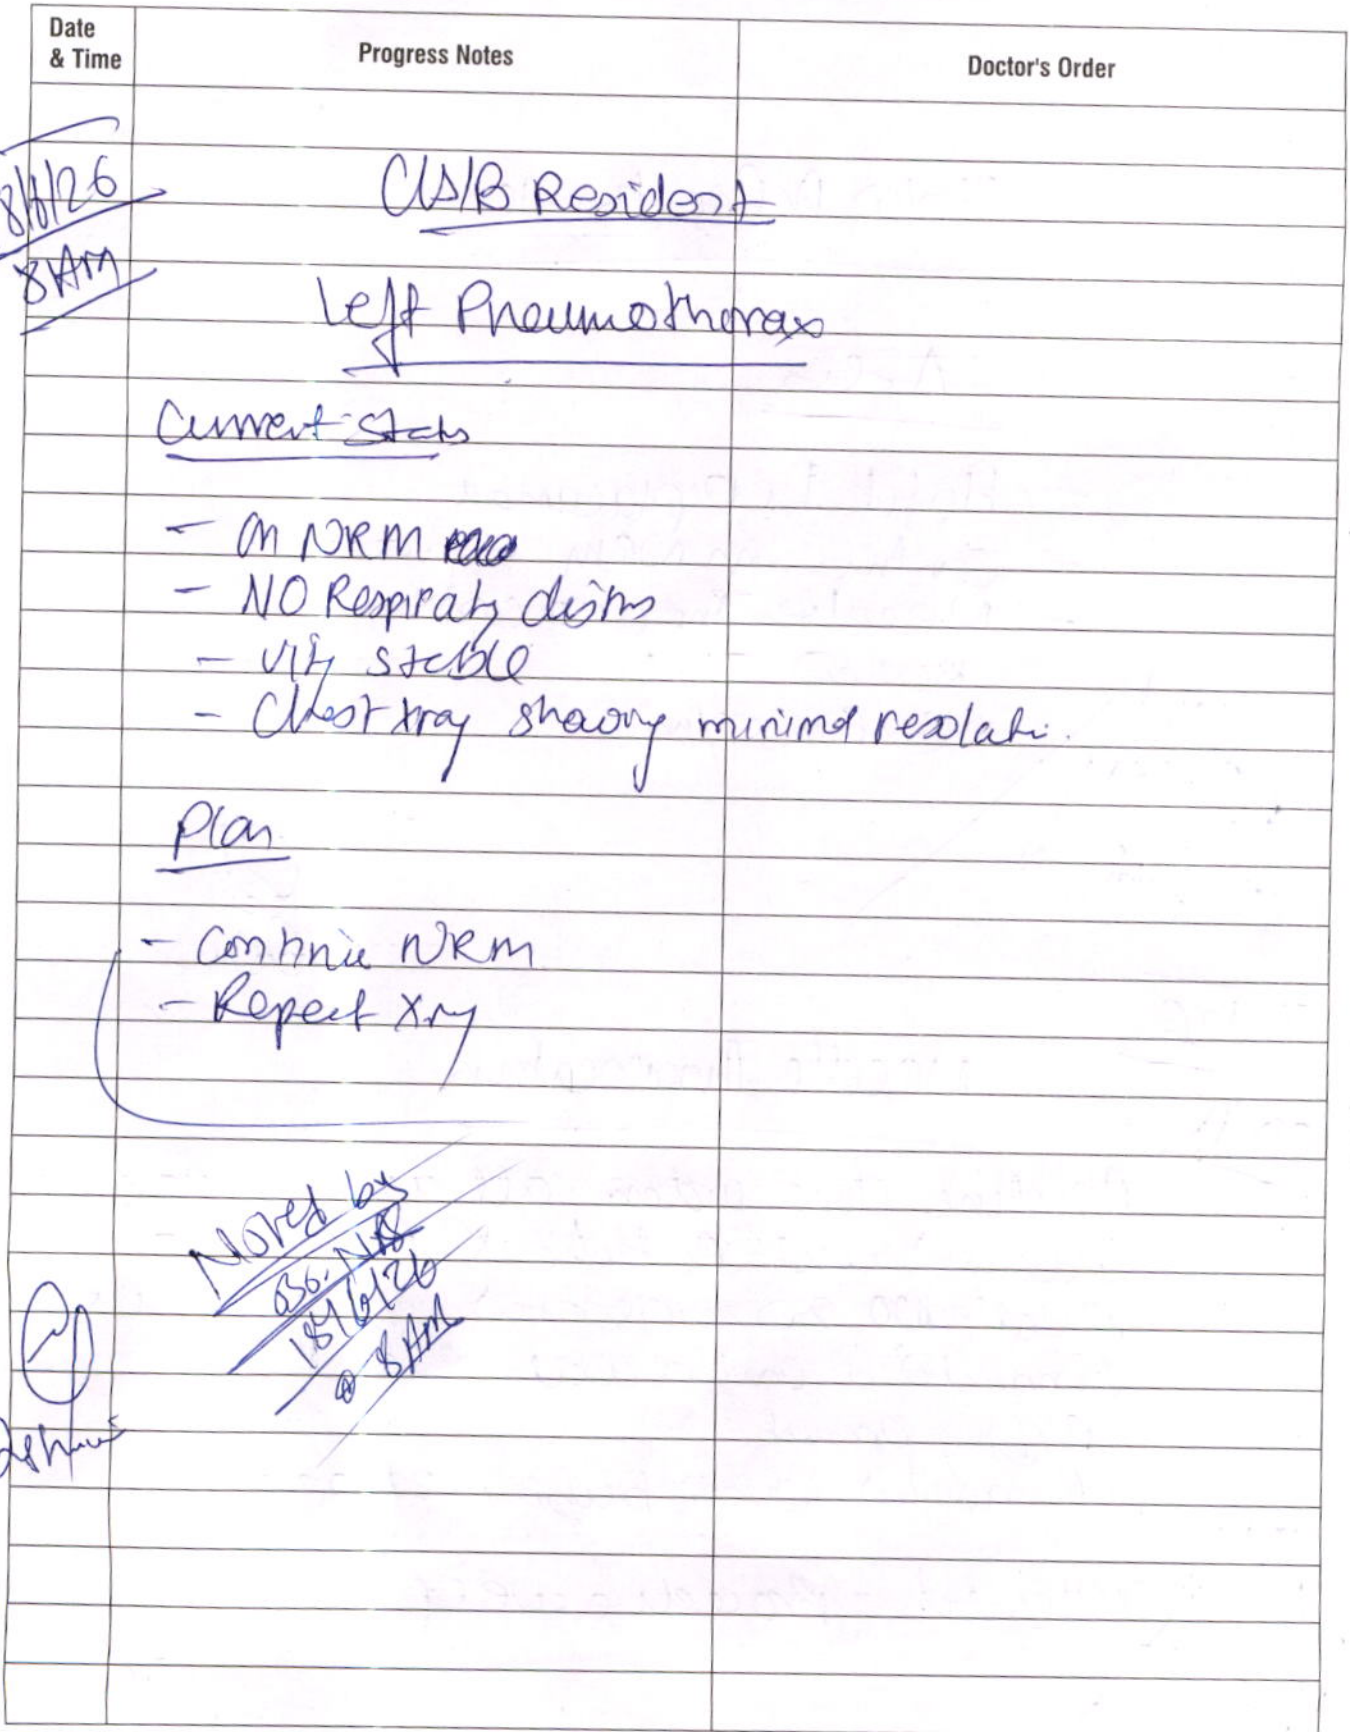 Date
& Time
Progress Notes
Doctor's Order
8/6/26
8 AM
C/S/B Resident
Left Pneumothorax
Current Status
- On NRM
- NO Respiratory distress
- Vitally stable
- Chest xray showing minimal resolution.
Plan
- Continue NRM
- Repeat Xray
Noted by
18/6/26
@ 8 AM